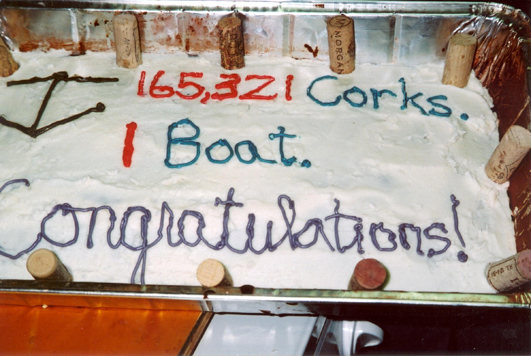 165,321 Corks.
1 Boat.
Congratulations!
MORGAN